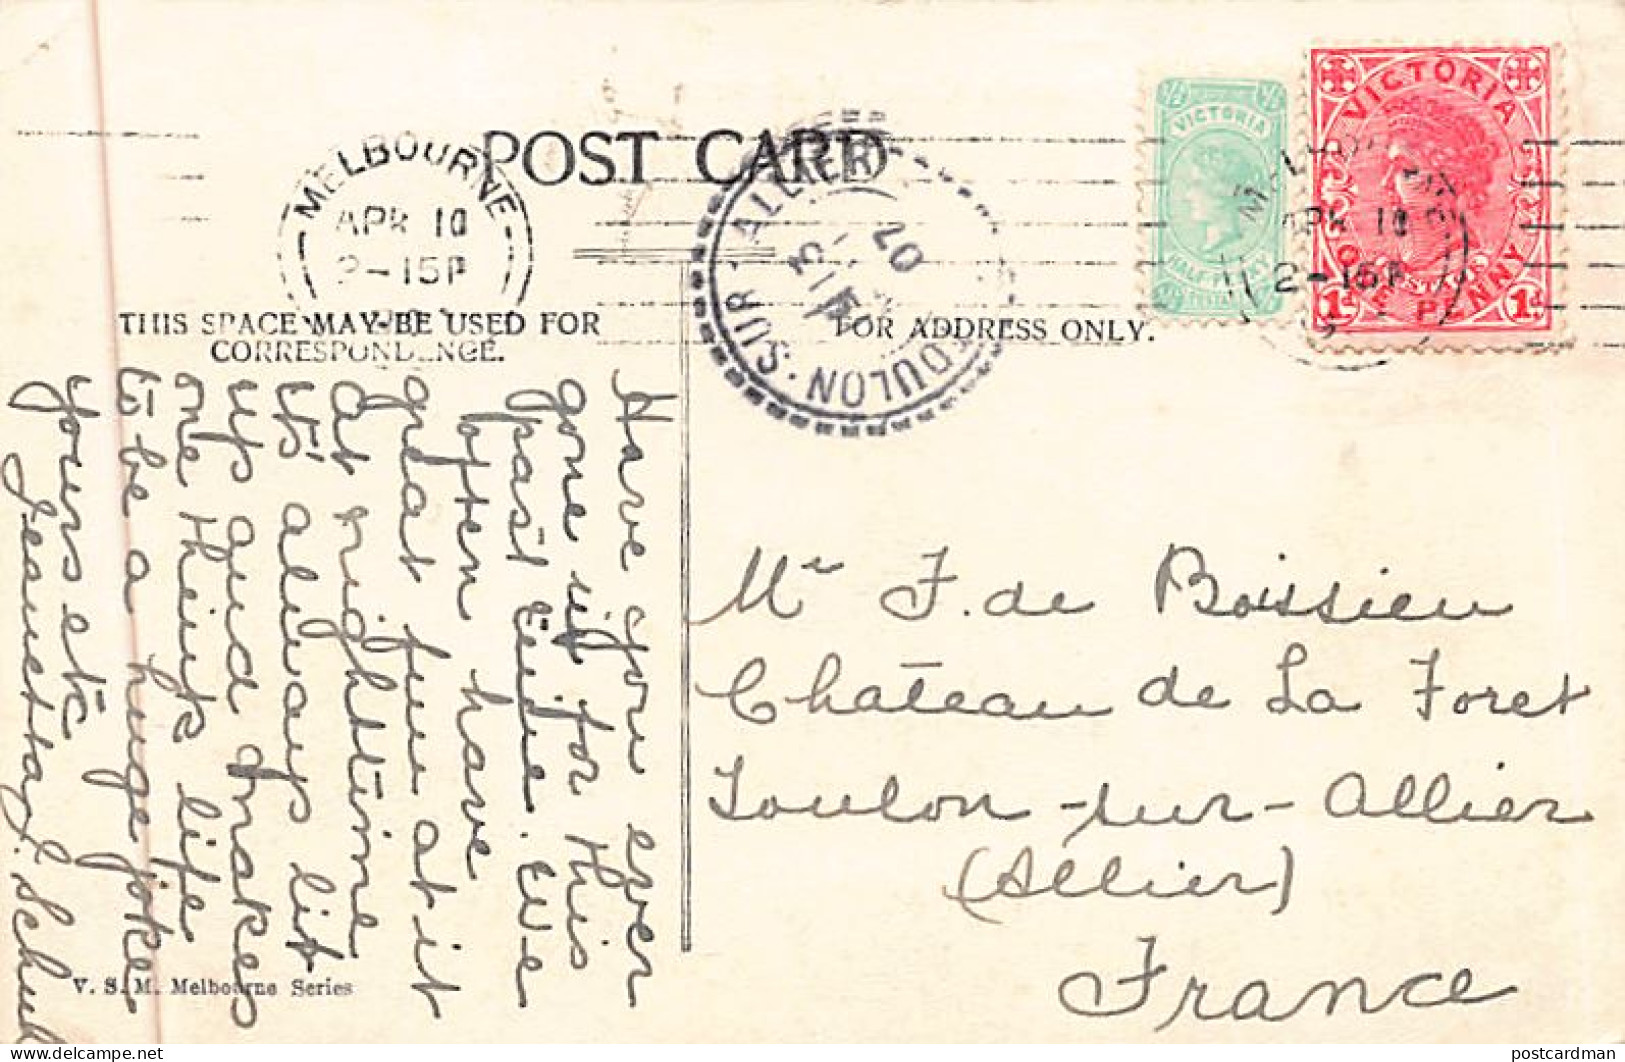 POST CARD
MELBOURNE
APR 10
2-15P
ALLIER
TOULON-SUR
07
VICTORIA
HALF PENNY
VICTORIA
ONE PENNY
POSTAGE
1d 1d
APR 10
2-15P
THIS SPACE MAY BE USED FOR
CORRESPONDENCE.
FOR ADDRESS ONLY.
Have you ever
gone up for this
past time. We
often have
great fun at it
at nighttime
its always lit
up and makes
one think life
to be a huge joke
Yours etc
Mr F. de Boissieu
Château de La Foret
Toulon-sur-Allier
(Allier)
France
V. S. M. Melbourne Series
postcardman